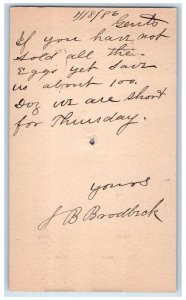 11/8/86
Gents
If you have not
sold all the
Eggs yet save
us about 100
Doz we are short
for Thursday.
yours
J B Brodbeck